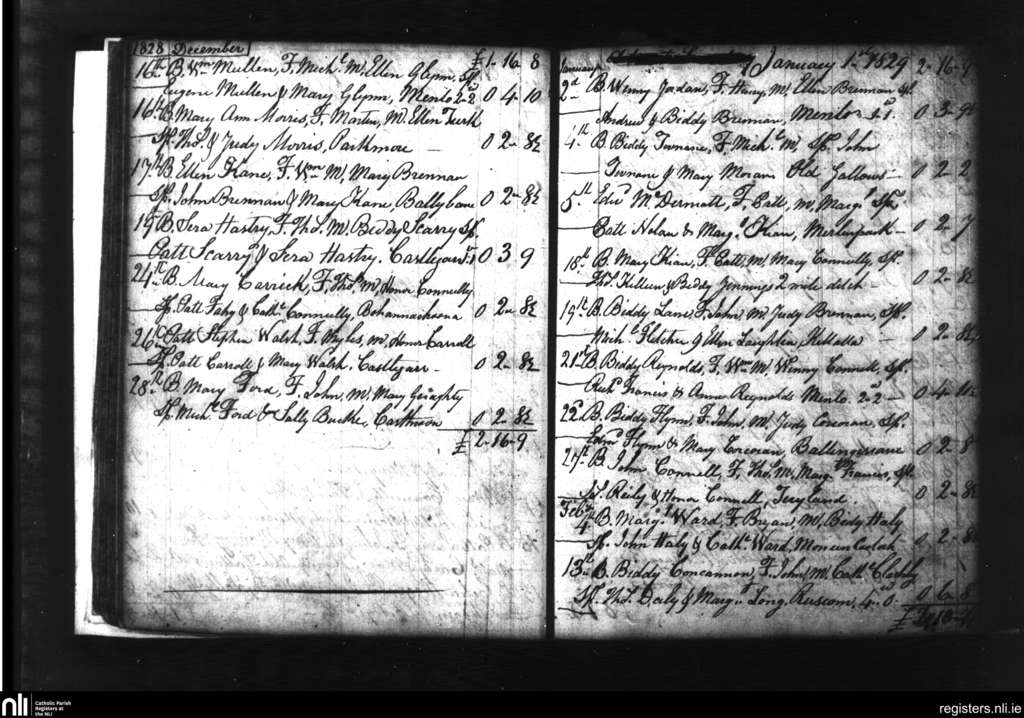 1828 December £1-16-8
16th B. Wm Mullen, F. Michl M, Ellen Glynn, Sp.
Eugene Mullen & Mary Glynn, Menlo 2-2 0 4-10
16th B. Mary Ann Morris, F. Martin, M. Ellen Turk
Sp. Thos. & Judy Morris, Parkmore — 0 2-8½
17th B. Ellen Kane, F. Wm M, Mary Brennan
Sp. John Brennan & Mary Kane, Ballybane 0 2-8½
19th B. Sera Hastry, F. Thos. M. Biddy Scarry Sp.
Patt Scarry & Sera Hastry. Castlegar 0 3 9
24th B. Mary Carrick, F. Thos. M, Honor Connelly
Sp. Patt Fahy & Cathe Connelly, 0 2-8½
26th Patt Stephen Walsh, F. Myles, M. Honor Carroll
Sp. Patt Carroll & Mary Walsh, Castlegarr - 0 2-8½
28th B. Mary Ford, F. John, M. Mary Geraghty
Sp. Michl Ford & Sally Burke, 0 2-8½
£ 2-16-9
January January 1st 1829 2-16-9
2nd B. Henry Jordan, F. Henry, M, Ellen Brennan Sp.
Andrew & Biddy Brennan, Menlo 1.1. 0-3-9½
4th B. Biddy F. Michl M, Sp. John
& Mary Moran Old Gallows — 0 2-2
5th Edwd McDermott, F. Patt, M, Margt Sp.
Patt Nolan & Margt Kean, Merlinpark — 0 2-7
18th B. Mary Kean, F. Patt, M, Mary Connelly, Sp.
Thos. Killeen & Biddy Jennings 2 mile ditch — 0 2-8½
19th B. Biddy Lane, F. John, M, Judy Brennan, Sp.
Michl Fletcher & Ellen Laughlin, — 0 2-8½
21st B. Biddy Reynolds, F. Wm M, Winny Connell, Sp.
Richd Francis & Anne Reynolds Menlo. 2-2 — 0-4-10½
22nd B. Biddy Flynn, F. John, M, Judy Corcoran, Sp.
Edmd Flynn & Mary Corcoran, 0 2-8
27th B. John Connell, F. Thos. M, Margt Francis, Sp.
Reily & Honor Connell, Terryland. 0 2-8½
Feby
4th B. Margt Ward, F. Bryan, M, Body Haly
Sp. John Haly & Cathe Ward, 0-2-8
13th B. Biddy Concannon, F. John, M, Cathe
Sp. Thos. Daly & Margt Long, Roscom, 4-0 0 6-8
nli
Catholic Parish
Registers at
the NLI
registers.nli.ie